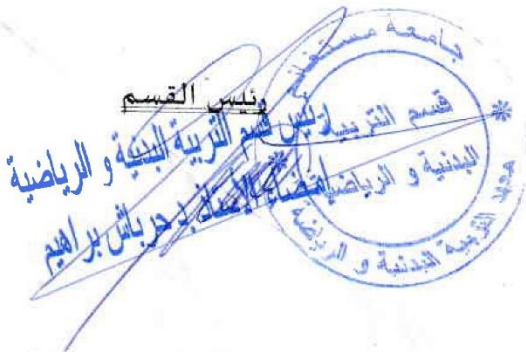 رئيس القسم
رئيس قسم التربية البدنية و الرياضية
إمضاء الأستاذ: حرباش براهيم
جامعة مستغانم
قسم التربية
البدنية و الرياضية
معهد التربية البدنية و الرياضية